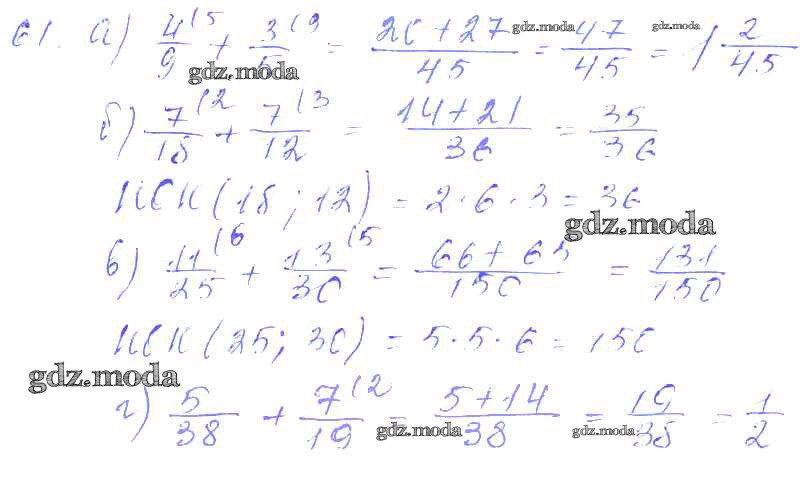 61. а) 4/9 (5 + 3/5 (9 = 20 + 27/45 = 47/45 = 1 2/45
gdz.moda gdz.moda gdz.moda
б) 7/18 (2 + 7/12 (3 = 14 + 21/36 = 35/36
НОК (18 ; 12) = 2 · 6 · 3 = 36
gdz.moda
в) 11/25 (6 + 13/30 (5 = 66 + 65/150 = 131/150
НОК (25; 30) = 5 · 5 · 6 = 150
gdz.moda
г) 5/38 + 7/19 (2 = 5 + 14/38 = 19/38 = 1/2
gdz.moda gdz.moda